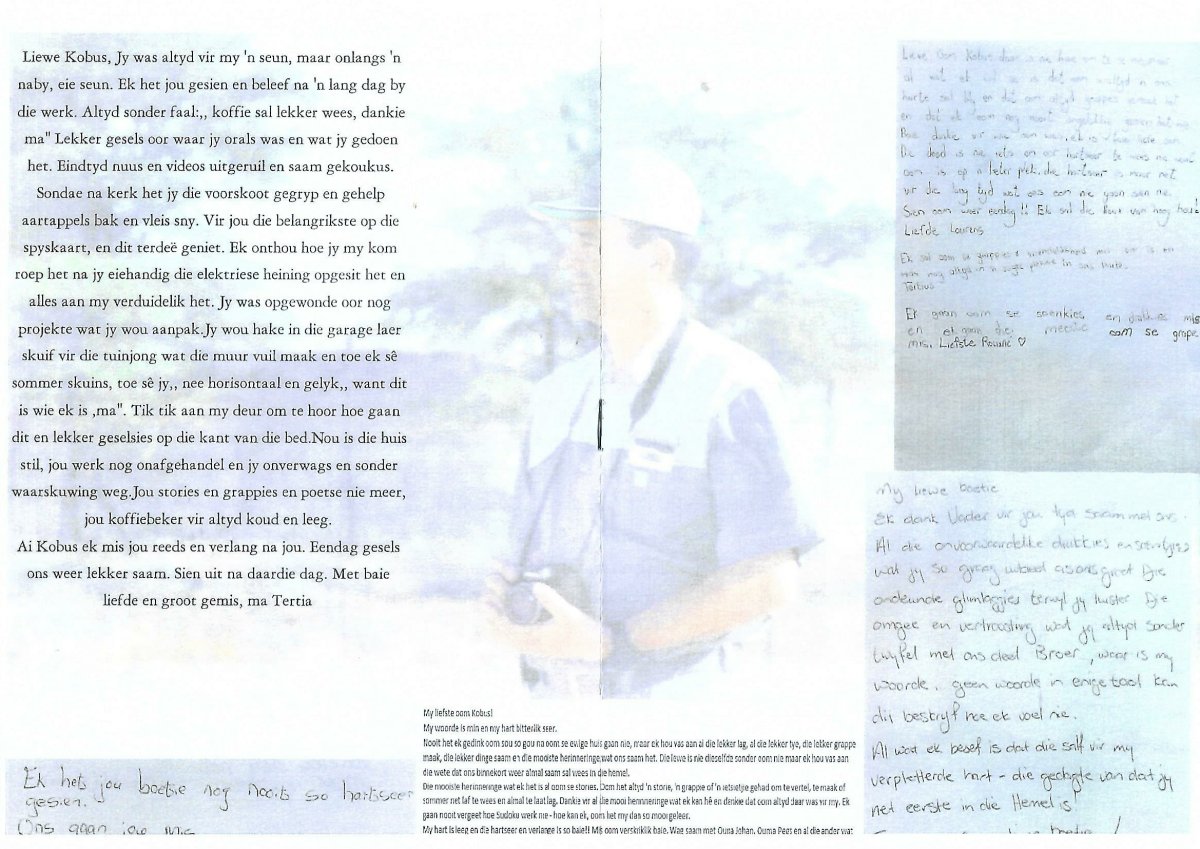 Liewe Kobus, Jy was altyd vir my 'n seun, maar onlangs 'n
naby, eie seun. Ek het jou gesien en beleef na 'n lang dag by
die werk. Altyd sonder faal:,, koffie sal lekker wees, dankie
ma" Lekker gesels oor waar jy orals was en wat jy gedoen
het. Eindtyd nuus en videos uitgeruil en saam gekoukus.
Sondae na kerk het jy die voorskoot gegryp en gehelp
aartappels bak en vleis sny. Vir jou die belangrikste op die
spyskaart, en dit terdeë geniet. Ek onthou hoe jy my kom
roep het na jy eiehandig die elektriese heining opgesit het en
alles aan my verduidelik het. Jy was opgewonde oor nog
projekte wat jy wou aanpak.Jy wou hake in die garage laer
skuif vir die tuinjong wat die muur vuil maak en toe ek sê
sommer skuins, toe sê jy,, nee horisontaal en gelyk,, want dit
is wie ek is ,ma". Tik tik aan my deur om te hoor hoe gaan
dit en lekker geselsies op die kant van die bed.Nou is die huis
stil, jou werk nog onafgehandel en jy onverwags en sonder
waarskuwing weg.Jou stories en grappies en poetse nie meer,
jou koffiebeker vir altyd koud en leeg.
Ai Kobus ek mis jou reeds en verlang na jou. Eendag gesels
ons weer lekker saam. Sien uit na daardie dag. Met baie
liefde en groot gemis, ma Tertia
Ek het jou boetie nog nooit so hartseer
gesien.
Ons gaan jou
My liefste oom Kobus!
My woorde is min en my hart bitterlik seer.
Nooit het ek gedink oom sou so gou na oom se ewige huis gaan nie, maar ek hou vas aan al die lekker lag, al die lekker tye, die lekker grappe
maak, die lekker dinge saam en die mooiste herinneringe wat ons saam het. Die lewe is nie dieselfde sonder oom nie maar ek hou vas aan
die wete dat ons binnekort weer almal saam sal wees in die hemel.
Die mooiste herinneringe wat ek het is al oom se stories. Oom het altyd 'n storie, 'n grappie of 'n ietsietjie gehad om te vertel, te maak of
sommer net laf te wees en almal te laat lag. Dankie vir al die mooi herinneringe wat ek kan hê en dankie dat oom altyd daar was vir my. Ek
gaan nooit vergeet hoe Sudoku werk nie - hoe kan ek, oom het my dan so mooi geleer.
My hart is leeg en die hartseer en verlange is so baie!! Mis oom verskriklik baie. Wag saam met Oupa Johan, Ouma Pees en al die ander wat
Liewe Oom Kobus daar is nie
al wat ek wil sê is dat oom altyd in ons
harte sal bly en dat oom altyd grapies gemaak het
en dat ek oom nog nooit
Baie dankie vir wie oom was, ek is
Die dood is nie
oom is op 'n beter plek, die hartseer is maar net
vir die lang tyd wat ons oom nie gaan sien nie.
Sien oom weer eendag!! Ek sal die
Liefde Lourens
Ek sal oom se grappies
Tertius
Ek gaan oom se soenkies en drukkies mis
en ek gaan die meeste oom se grape
mis. Liefste Rouané ♡
My liewe boetie
Ek dank Vader vir jou tyd saam met ons.
Al die onvoorwaardelike drukkies en soentjies
wat jy so graag uitdeel as ons groet Die
ondeunde glimlaggies terwyl jy luister Die
omgee en vertroosting wat jy altyd sonder
twyfel met ons deel Broer, waar is my
woorde, geen woorde in enige taal kan
dit beskryf hoe ek voel nie.
Al wat ek besef is dat die salf vir my
verpletterde hart - die gedagte van dat jy
net eerste in die Hemel is!